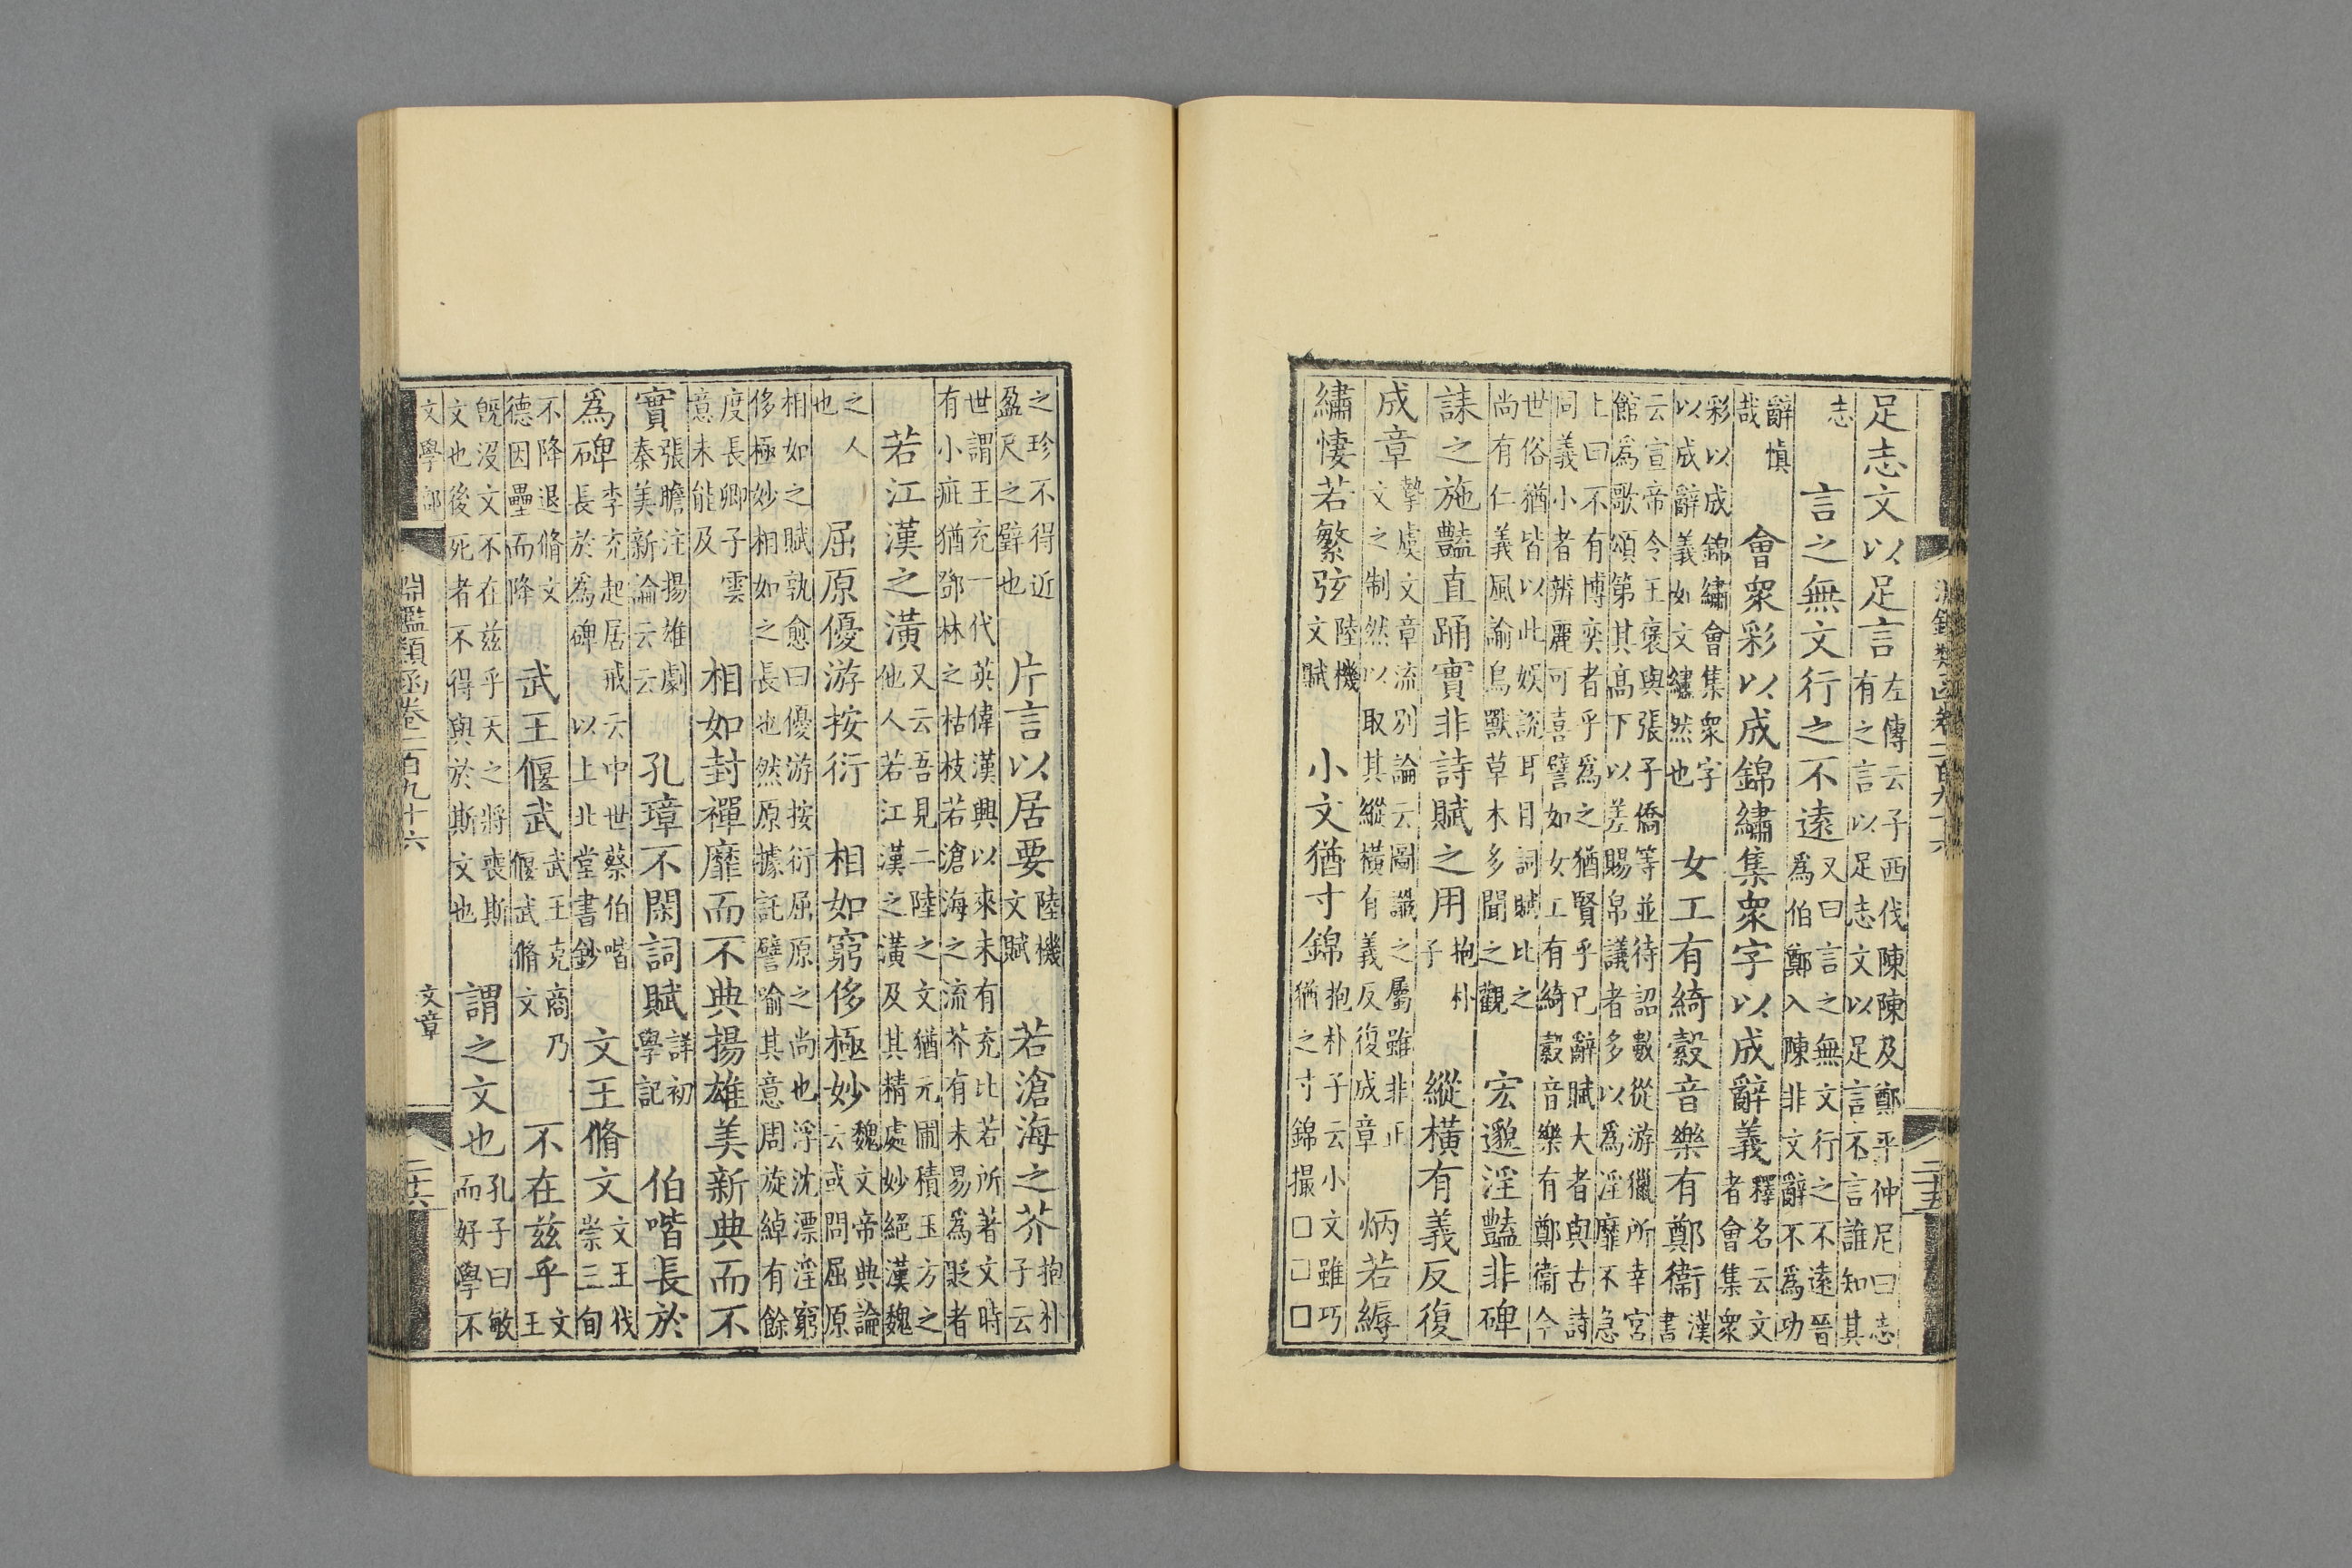 足志文以足言左傳云子西伐陳陳及鄭平仲尼曰志有之言以足志文以足言不言誰知其
志　言之無文行之不遠又曰言之無文行之不遠晉為伯鄭入陳非文辭不為功
辭慎哉　會衆彩以成錦繡集衆字以成辭義釋名云文者會集衆
彩以成錦繡會集衆字以成辭義如文繡然也　女工有綺縠音樂有鄭衞漢書
云宣帝令王褒與張子僑等並待詔數從游獵所幸宮館為歌頌第其高下以差賜帛議者多以為淫靡不急
上曰不有博奕者乎為之猶賢乎已辭賦大者與古詩同義小者辨麗可喜譬如女工有綺縠音樂有鄭衞今
世俗猶皆以此娛說耳目詞賦比之尚有仁義風諭鳥獸草木多聞之觀　宏邈淫豔非碑
誄之施豔直踊實非詩賦之用抱朴子　縱橫有義反復
成章摯虞文章流别論云圖讖之屬雖非正文之制然以取其縱橫有義反復成章　炳若縟
繡悽若繁弦陸機文賦　小文猶寸錦抱朴子云小文雖巧猶之寸錦撮□□□
之珍不得近盈尺之璧也　片言以居要陸機文賦　若滄海之芥抱朴子云
世謂王充一代英偉漢興以來未有充比若所著文時有小疵猶鄧林之枯枝若滄海之流芥有未易為貶者
若江漢之潢又云吾見二陸之文猶元圃積玉方之他人若江漢之潢及其精處妙絕漢魏
之人也　屈原優游按衍　相如窮侈極妙魏文帝典論云或問屈原
相如之賦孰愈曰優游按衍屈原之尚也浮沈漂淫窮侈極妙相如之長也然原據託譬喻其意周旋綽有餘
度長卿子雲意未能及　相如封禪靡而不典揚雄美新典而不
實張瞻注揚雄劇秦美新論云云　孔璋不閑詞賦詳初學記　伯喈長於
為碑李充起居戒云中世蔡伯喈長於為碑以上北堂書鈔　文王脩文文王伐崇三旬
不降退脩文德因壘而降　武王偃武武王克商乃偃武脩文　不在茲乎文王
旣沒文不在茲乎天之將喪斯文也後死者不得與於斯文也　謂之文也孔子曰敏而好學不
文學部　淵鑑類函卷一百九十六　文章　二十六